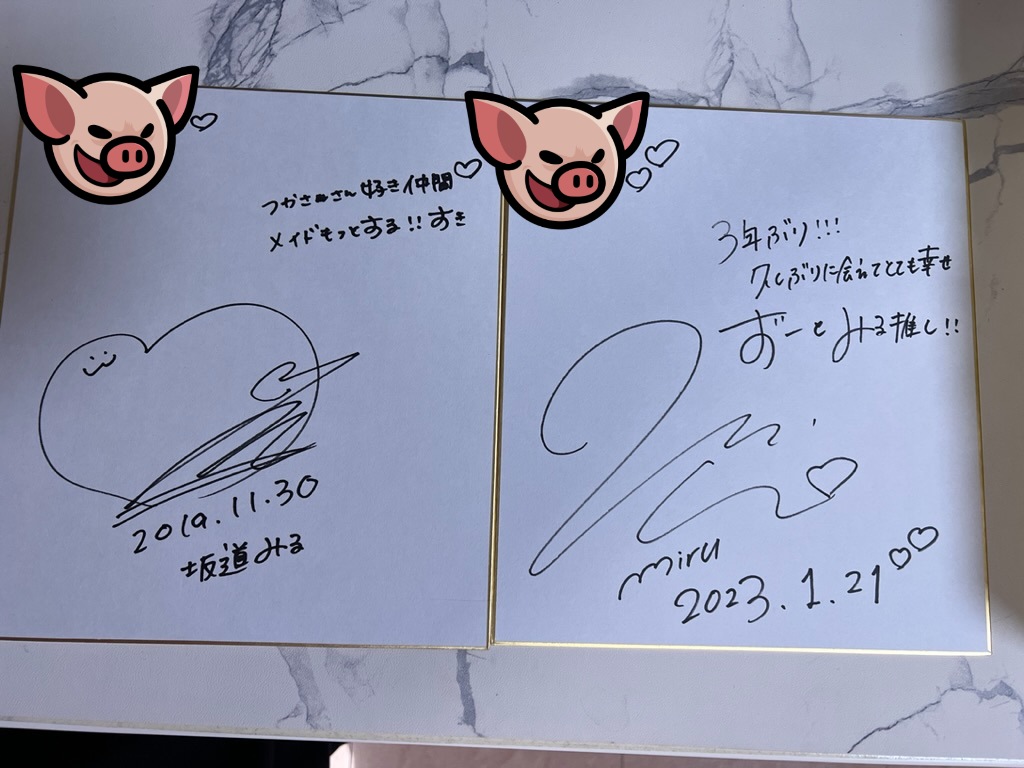 つかさめさん好き仲間♡
メイドもっとする!!すき
2019.11.30
坂道みる
3年ぶり!!!
久しぶりに会えてとても幸せ
ずーとみる推し!!
miru
2023.1.21